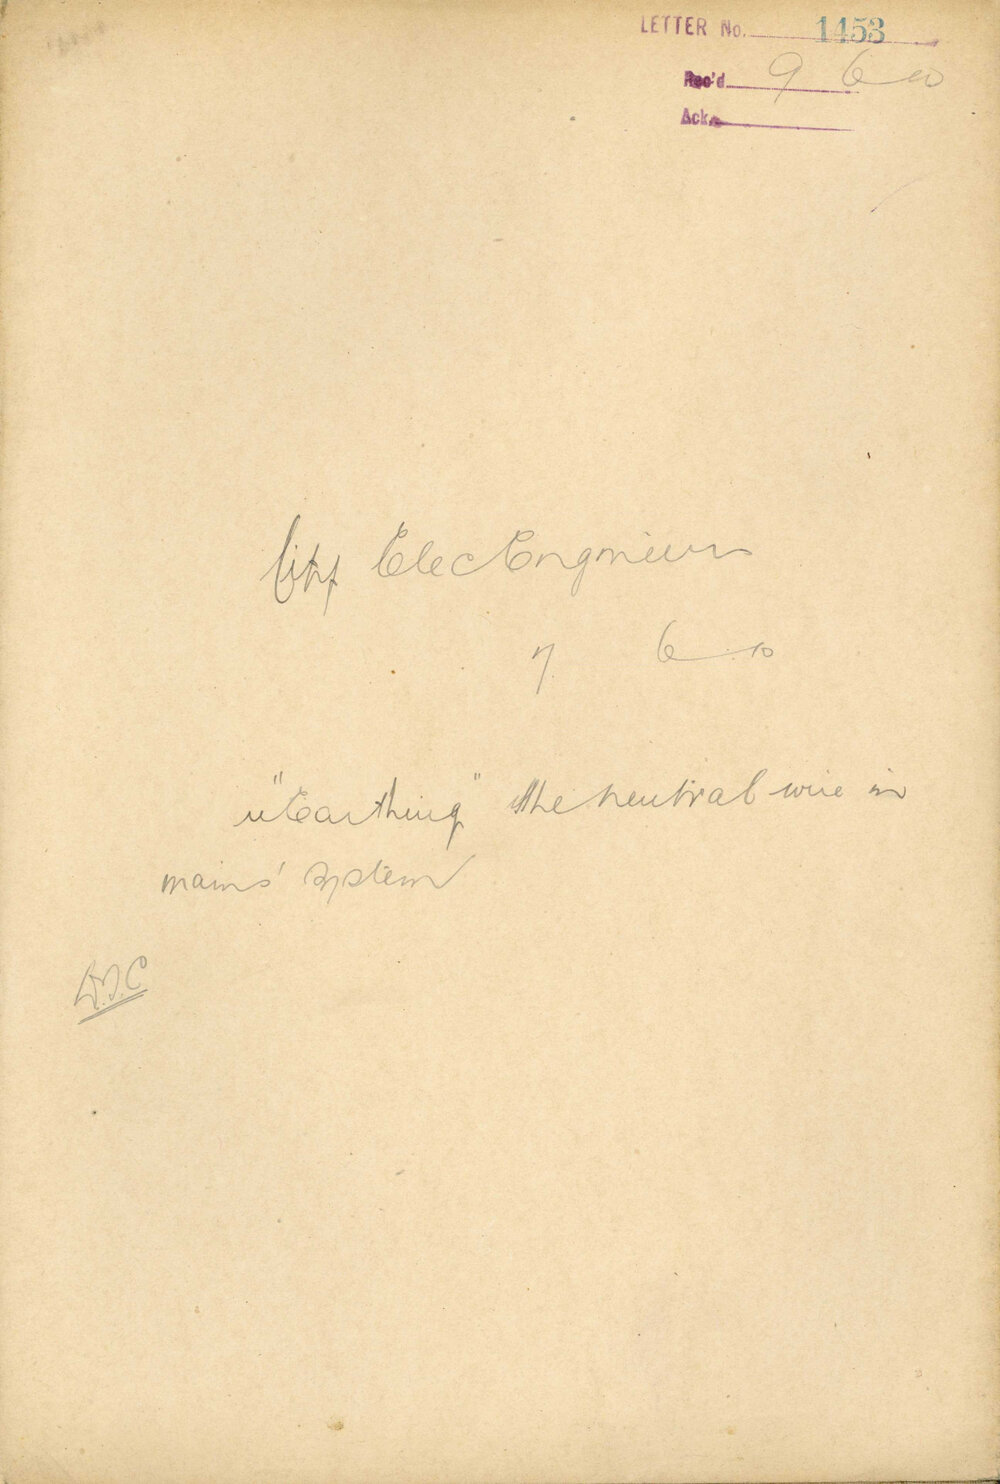 LETTER No. 1453
Rec'd 9 6 10
Ack.
City Elec Engineer
7 6 10
re "Earthing" the neutral wire in
mains' system